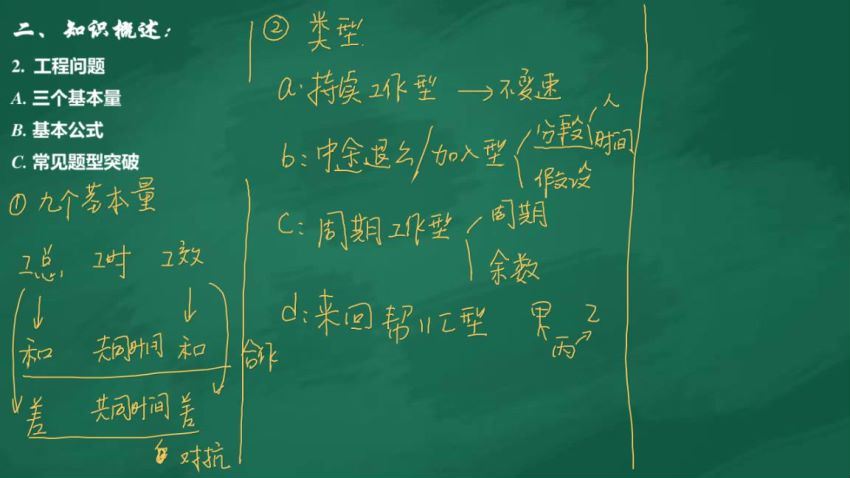 二、知识概述：
2. 工程问题
A. 三个基本量
B. 基本公式
C. 常见题型突破
① 九个基本量
工总 工时 工效
和 共同时间 和 合作
差 共同时间 差
对抗
② 类型
a: 持续工作型 →不变速
b: 中途退出/加入型 分段 人 时间
假设
C: 周期工作型 周期
余数
d: 来回帮忙型 甲 乙
丙